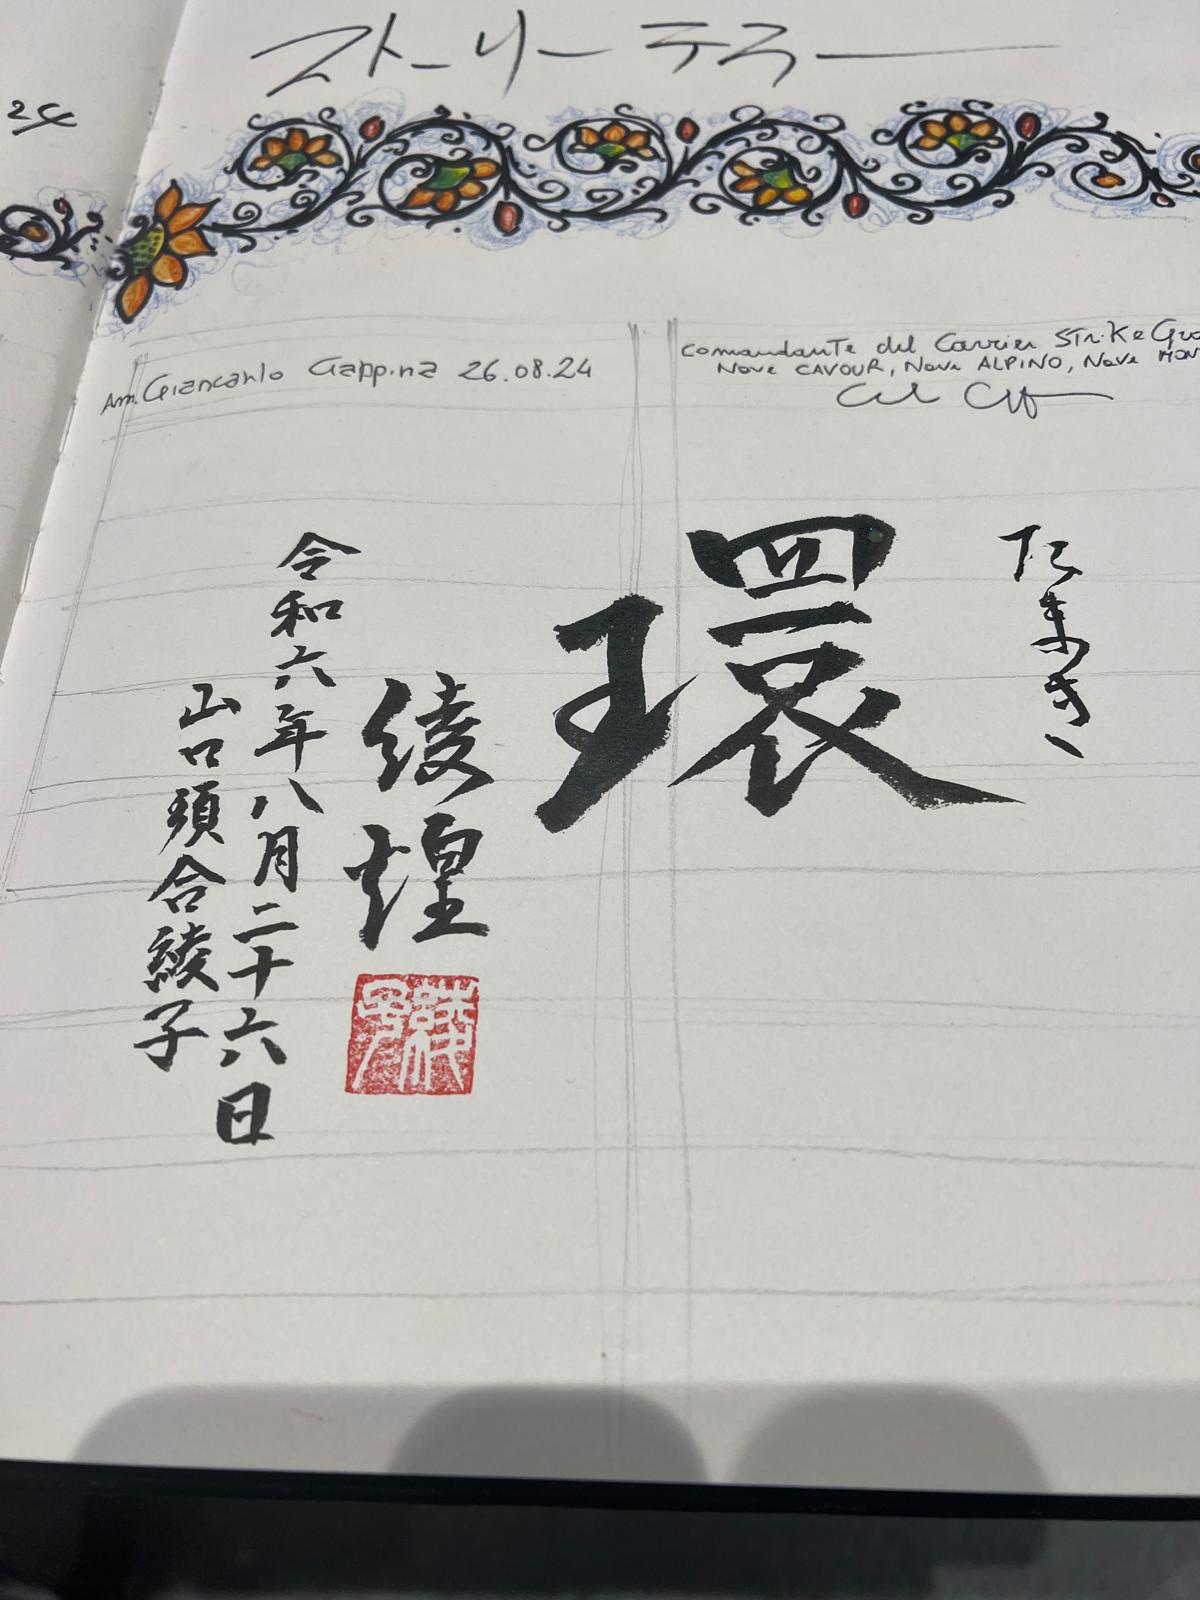 ストーリーテラー
24
Am. Giancarlo Ciappina 26.08.24
Comandante del Carrier Strike Gro
Nave CAVOUR, Nave ALPINO, Nave MON
たまき
環
綾煌
令和六年八月二十六日
山口須合綾子